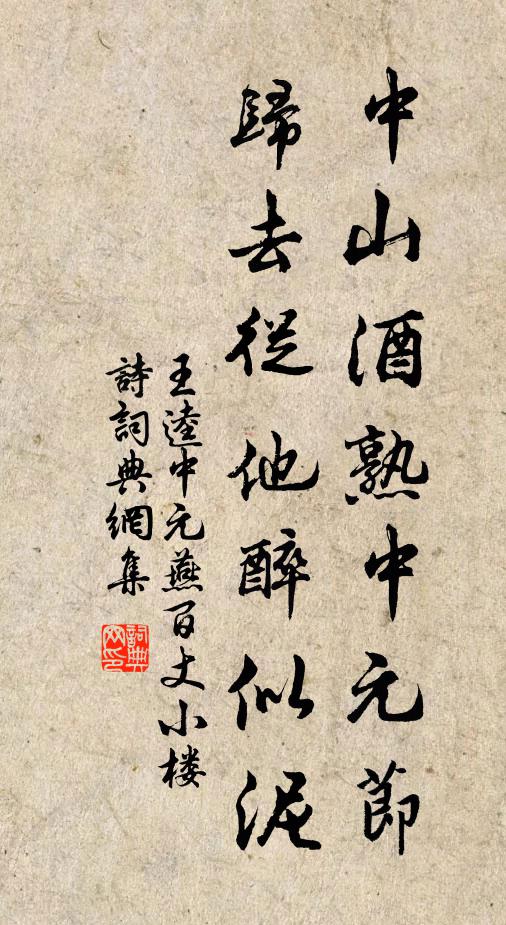 中山酒熟中元節
歸去從他醉似泥
王逵中元燕百丈小楼
詩詞典網集
詞典
网印